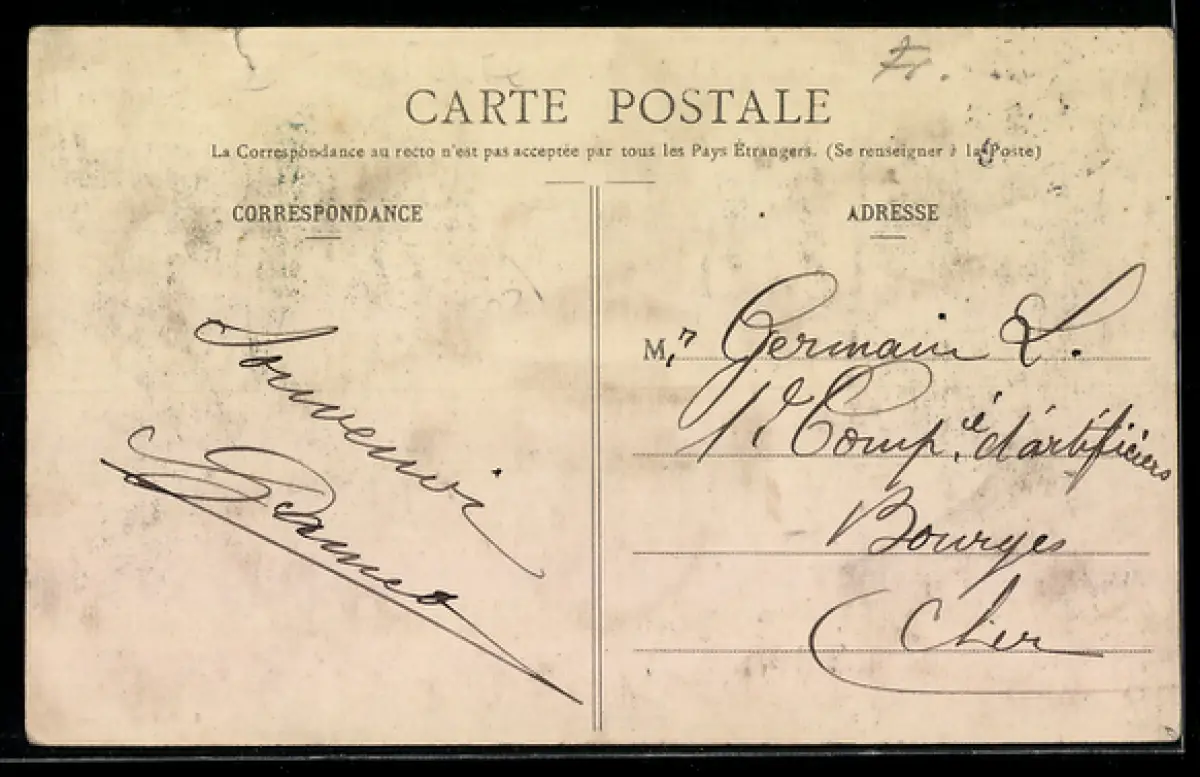 CARTE POSTALE
La Correspondance au recto n'est pas acceptée par tous les Pays Étrangers. (Se renseigner à la Poste)
CORRESPONDANCE
Souvenir
ADRESSE
Mr Germain L.
1e Comp.ie d'artificiers
Bourges
Cher